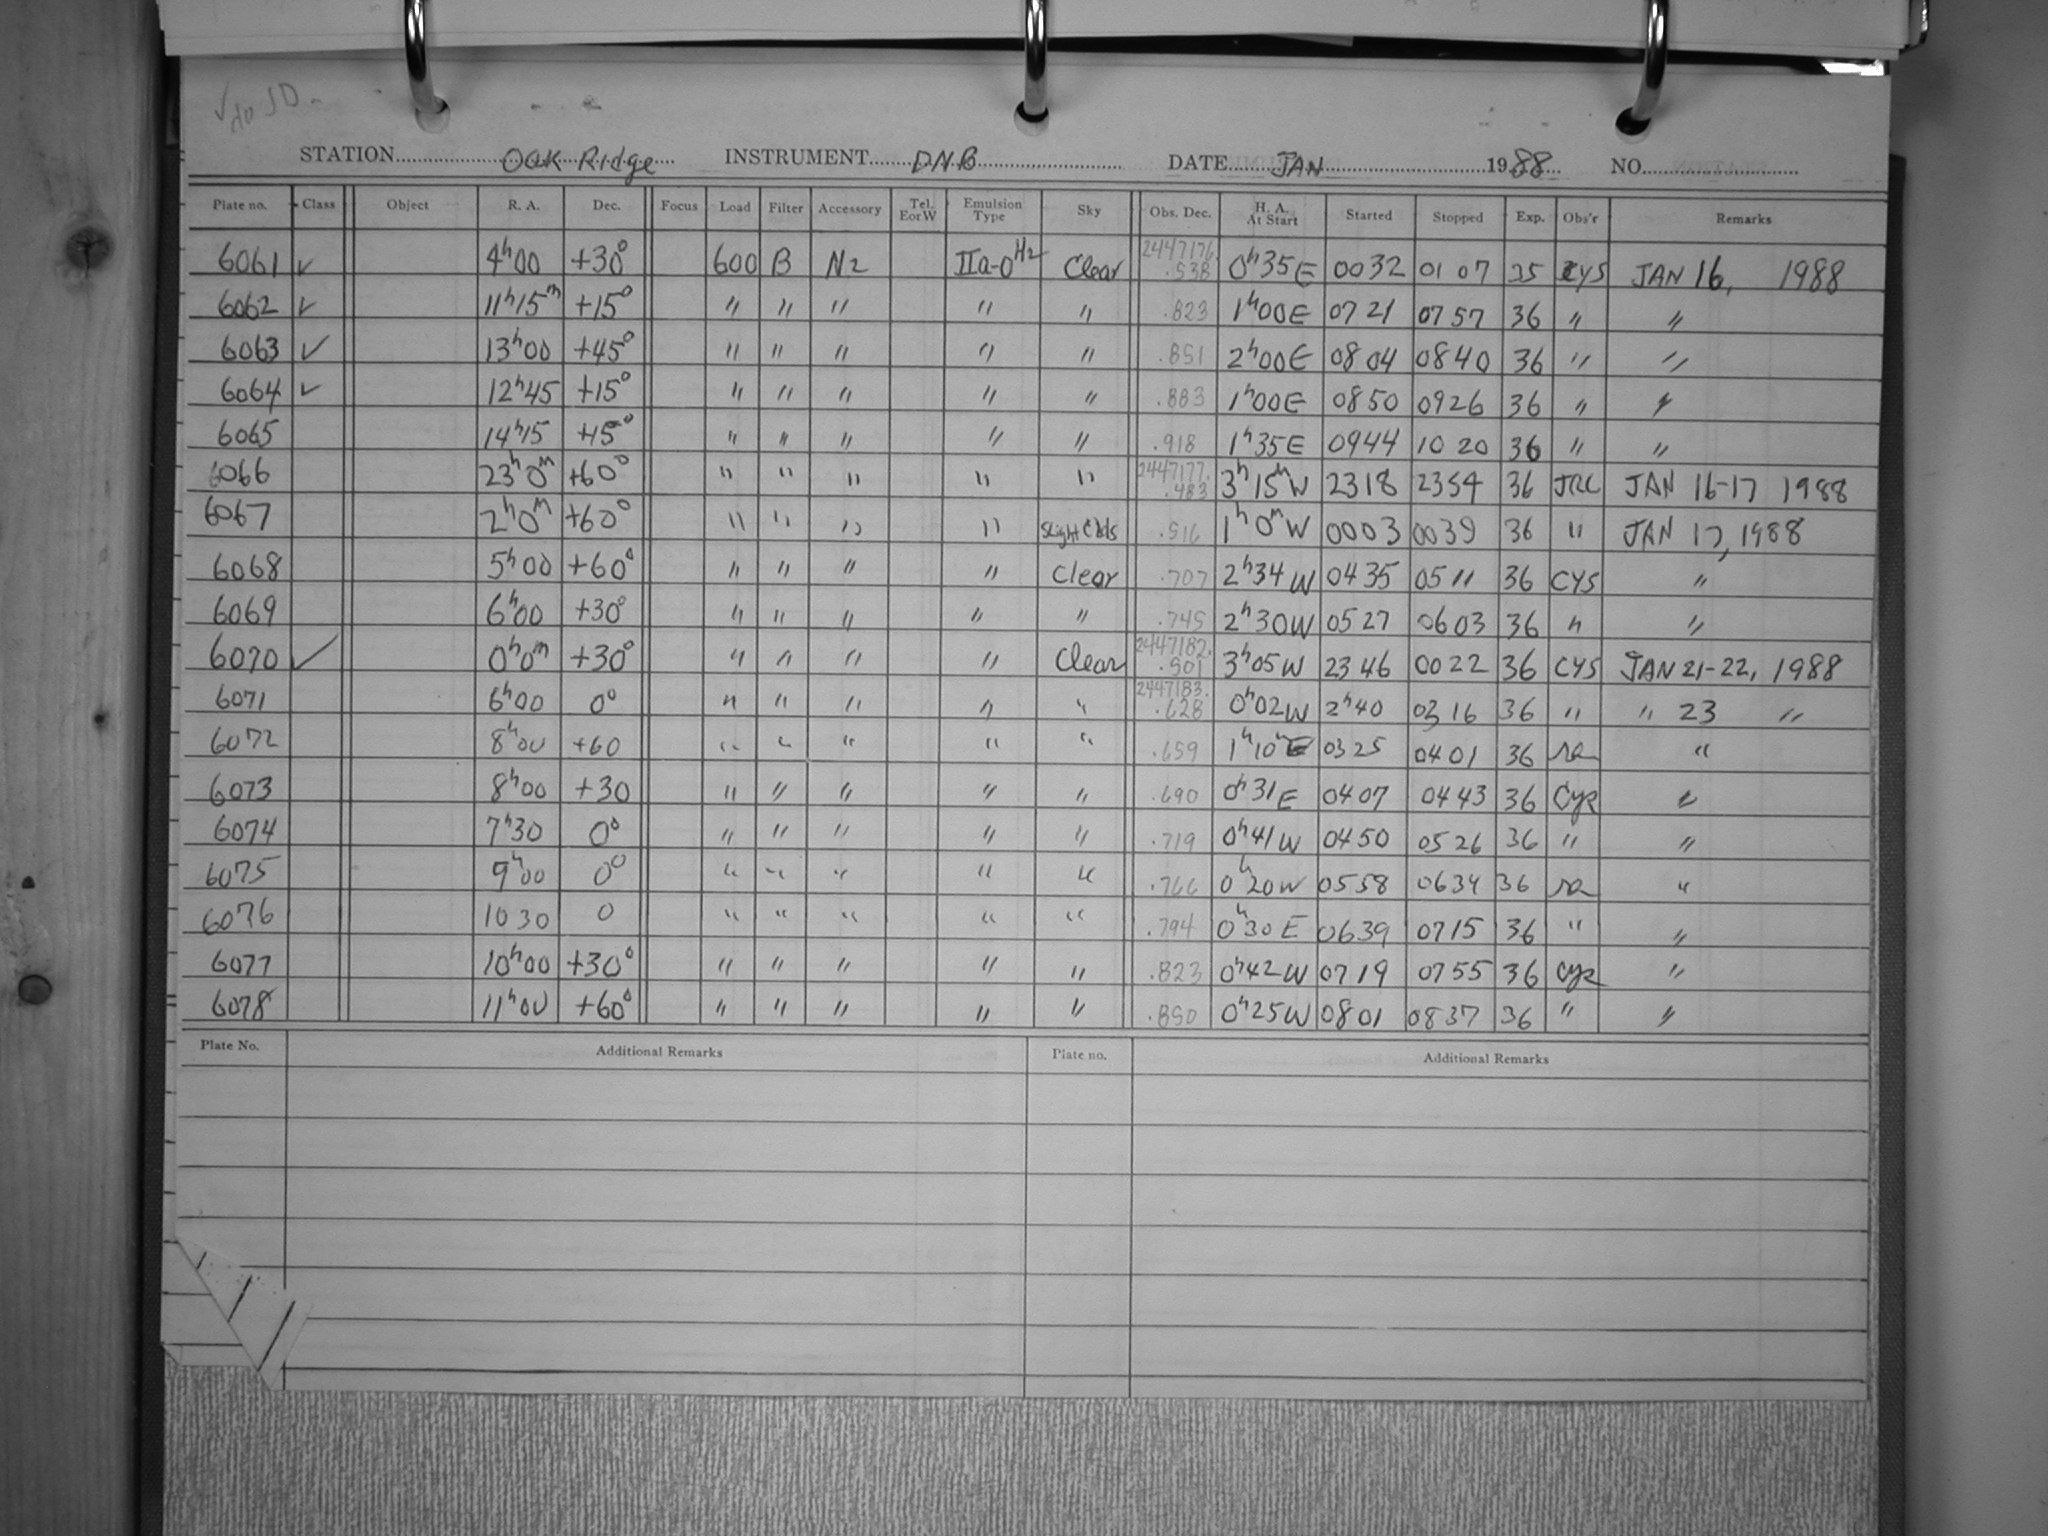 √ do JD.
STATION OAK Ridge INSTRUMENT DNB DATE JAN 1988 NO.
Plate no. Class Object R. A. Dec. Focus Load Filter Accessory Tel. E or W Emulsion Type Sky Obs. Dec. H. A. At Start Started Stopped Exp. Obs'r Remarks
6061 ✓ 4h00 +30° 600 B N2 IIa-O H2 Clear 2447176.538 0h35E 0032 0107 35 CYS JAN 16, 1988
6062 ✓ 11h15m +15° " " " " " .823 1h00E 0721 0757 36 " "
6063 ✓ 13h00 +45° " " " " " .851 2h00E 0804 0840 36 " "
6064 ✓ 12h45 +15° " " " " " .883 1h00E 0850 0926 36 " "
6065 14h15 +15° " " " " " .918 1h35E 0944 1020 36 " "
6066 23h0m +60° " " " " " 2447177.483 3h15mW 2318 2354 36 JRC JAN 16-17 1988
6067 2h0m +60° " " " " Slight Clds .516 1h0mW 0003 0039 36 " JAN 17, 1988
6068 5h00 +60° " " " " Clear .707 2h34W 0435 0511 36 CYS "
6069 6h00 +30° " " " " " .745 2h30W 0527 0603 36 " "
6070 ✓ 0h0m +30° " " " " Clear 2447182.501 3h05W 2346 0022 36 CYS JAN 21-22, 1988
6071 6h00 0° " " " " " 2447183.628 0h02W 2h40 0316 36 " " 23 "
6072 8h00 +60 " " " " " .659 1h10E 0325 0401 36 "
6073 8h00 +30 " " " " " .690 0h31E 0407 0443 36 CYR "
6074 7h30 0° " " " " " .719 0h41W 0450 0526 36 " "
6075 9h00 0° " " " " " .766 0h20W 0558 0634 36 "
6076 10 30 0 " " " " " .794 0h30E 0639 0715 36 " "
6077 10h00 +30° " " " " " .823 0h42W 0719 0755 36 CYR "
6078 11h00 +60° " " " " " .850 0h25W 0801 0837 36 " "
Plate No. Additional Remarks Plate no. Additional Remarks